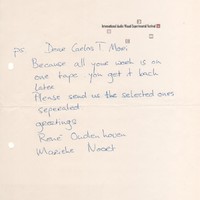 International Audio Visual Experimental Festival
ps Dear Gelas T Mori
Because all your work is on
one tape you get it back
later
Please send us the selected ones
seperated
greetings
René Coudenhoven
Marieke Noort